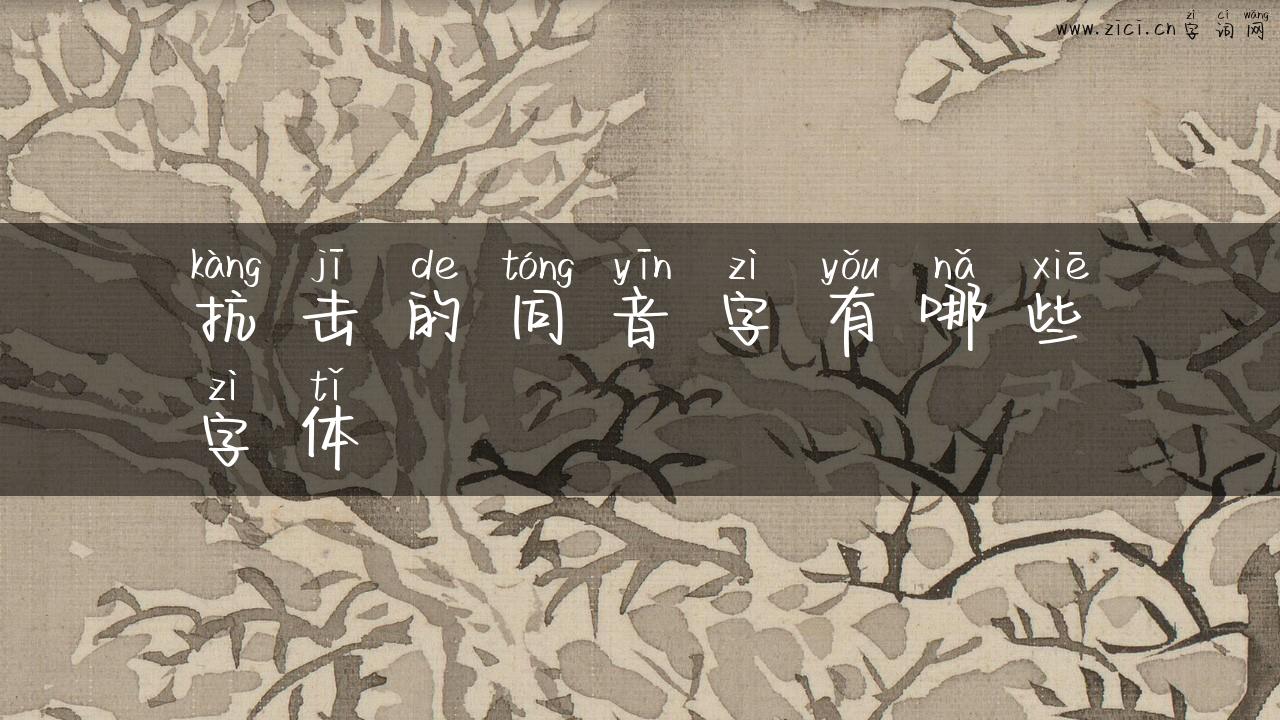 zì cí wǎng
www.zici.cn 字 词 网
kàng jī de tóng yīn zì yǒu nǎ xiē
抗 击 的 同 音 字 有 哪 些
zì tǐ
字 体